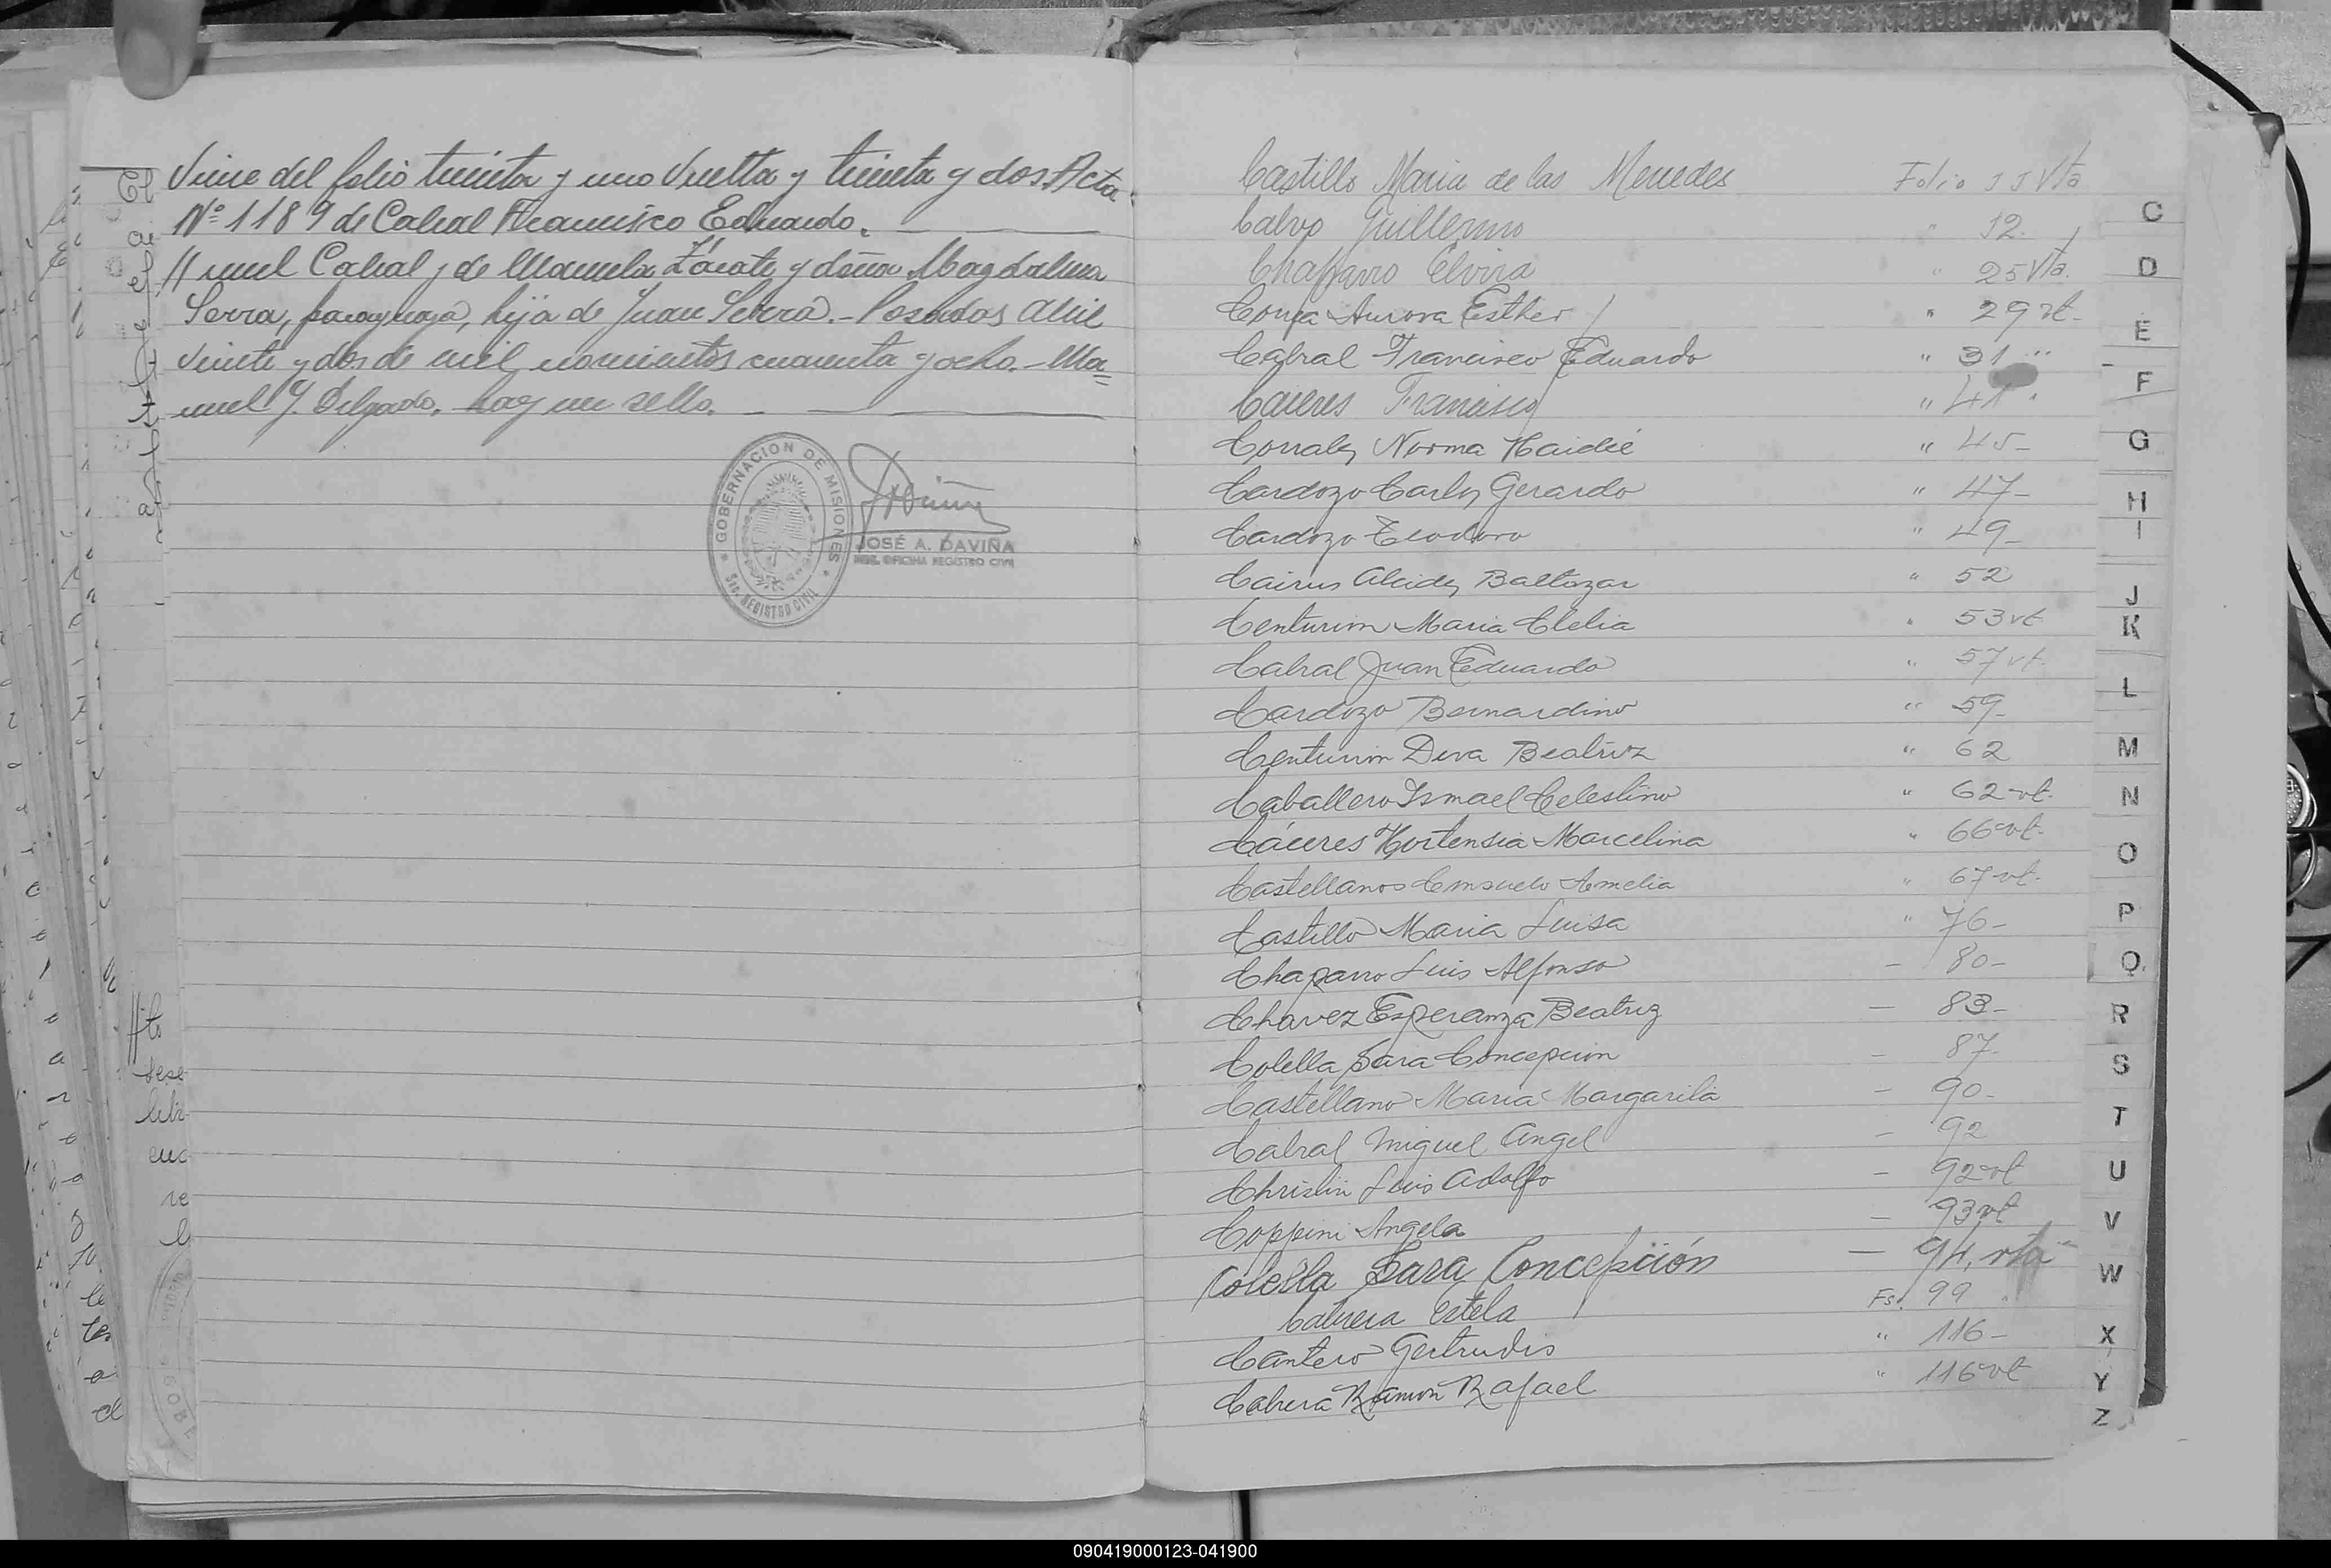 Viene del folio treinta y uno vuelta y treinta y dos. Acta
Nº 1189 de Cabral Francisco Eduardo.
// nuel Cabral y de Manuela Zárate y doña Magdalena
Serra, paraguaya, hija de Juan Serra.- Posadas Abril
veinte y dos de mil novecientos cuarenta y ocho.- Ma=
nuel J. Delgado. hay un sello.
GOBERNACION DE MISIONES
REGISTRO CIVIL
JOSÉ A. DAVIÑA
OFICINA REGISTRO CIVIL
Castillo Maria de las Mercedes Folio 11 Vta
Calvo Guillermo " 12.
Chaparro Elvira " 25 Vta.
Aurora Esther " 29 vt-
Cabral Francisco Eduardo " 31 "
Cáceres Francisco " 41
Corrales Norma Haideé " 45-
Cardozo Carlos Gerardo " 47-
Cardozo Teodoro " 49-
Cairus Alcides Baltazar " 52
Centurion Maria Clelia " 53 vt
Cabral Juan Eduardo " 57 vt.
Cardozo Bernardino " 59-
Centurion Deva Beatriz " 62
Caballero Ismael Celestino " 62 vt.
Cáceres Hortensia Marcelina " 66 vt.
Castellanos Consuelo Amelia " 67 vt.
Castillo Maria Luisa " 76-
Chaparro Luis Alfonso - 80-
Chavez Esperanza Beatriz - 83-
Colella Sara Concepcion - 87-
Castellano Maria Margarita - 90-
Cabral Miguel Angel - 92
Luis Adolfo - 92 vt
Coppini Angela - 93 vt
Colella Sara Concepción - 94, vta
Cabrera Estela Fs. 99
Cantero Gertrudis " 116-
Cabrera Ramón Rafael " 116 vt
C
D
E
F
G
H
I
J
K
L
M
N
O
P
Q
R
S
T
U
V
W
X
Y
Z
090419000123-041900